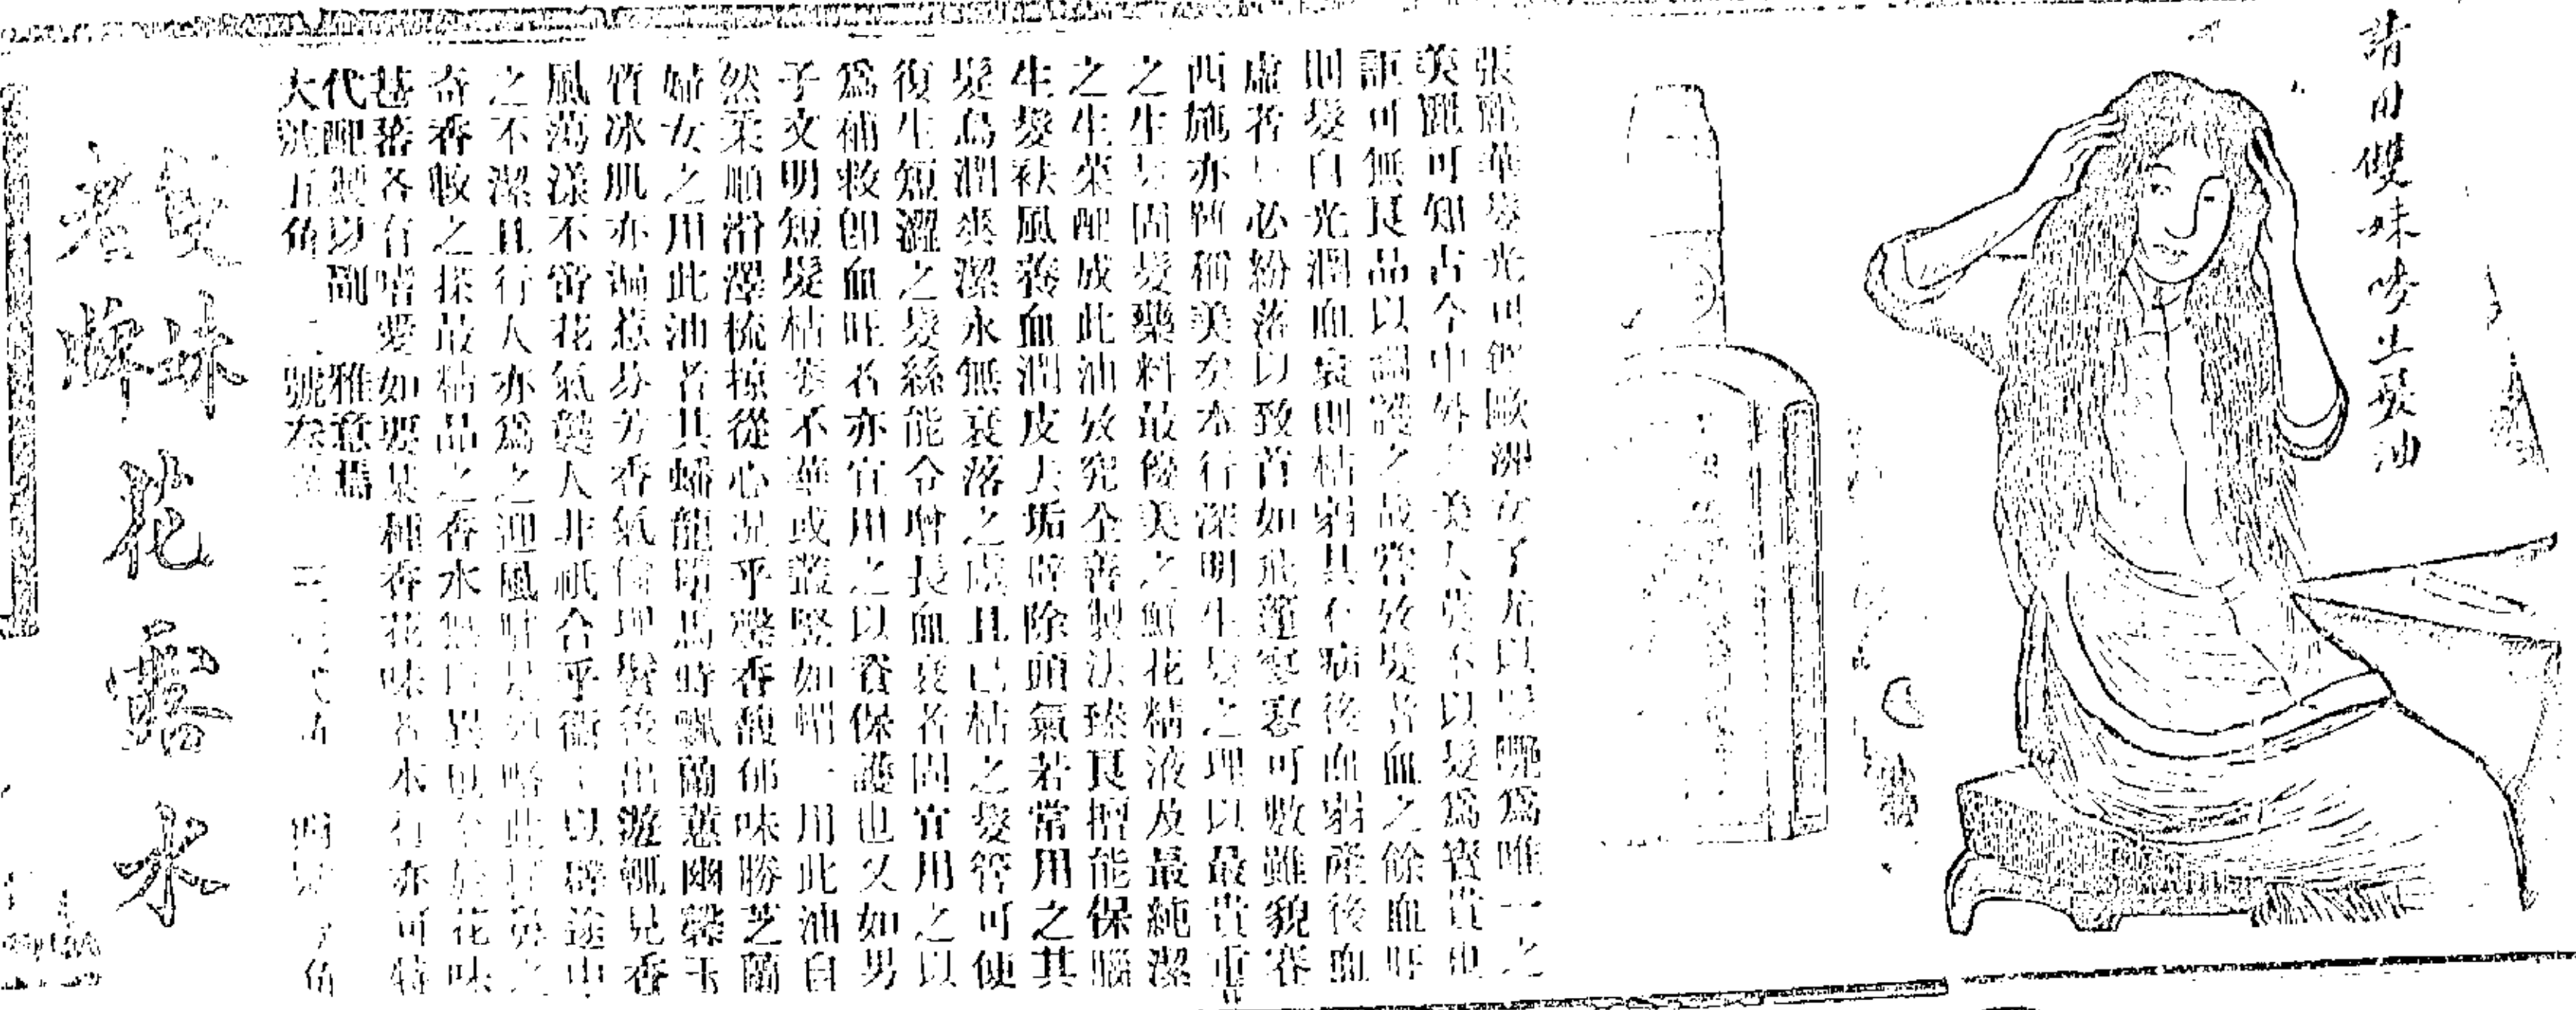 請用雙妹嘜生髮油
張麗華髮光可鑑歐洲女子尤以髮艷為唯一之
美麗可知古今中外之美人莫不以髮為寶貴也
詎可無良品以調護之哉嘗攷髮者血之餘血旺
則髮自光潤血衰則枯弱其在病後血弱產後血
虛者髮必紛落以致首如飛蓬寥寥可數雖貌賽
西施亦難稱美矣本行深明生髮之理以最貴重
之生髮固髮藥料最優美之鮮花精液及最純潔
之生榮配成此油攷究全善製法臻良擅能保腦
生髮袪風養血潤皮去垢辟除頭氣若常用之其
髮烏潤爽潔永無衰落之虞且已枯之髮管可使
復生短澀之髮絲能令增長血衰者固宜用之以
為補救卽血旺者亦宜用之以養保護也又如男
子文明短髮枯萎不華或叢竪如帽一用此油自
然柔順滑澤梳掠從心況乎馨香馥郁味勝芝蘭
婦女之用此油者其蟠龍墮馬時飄蘭蕙幽馨玉
質冰肌亦遍惹芬芳香氣倘理髮後出遊輒見香
風蕩漾不啻花氣襲人非祇合乎衛生以辟途中
之不潔且行人亦為之迎風
奇香較之採最粘品之香水無
甚落各有嗜愛如要某種香花味者本行亦可特
代配製以副 雅意焉
大號五角 二號叁角
雙妹
老牌
花露水